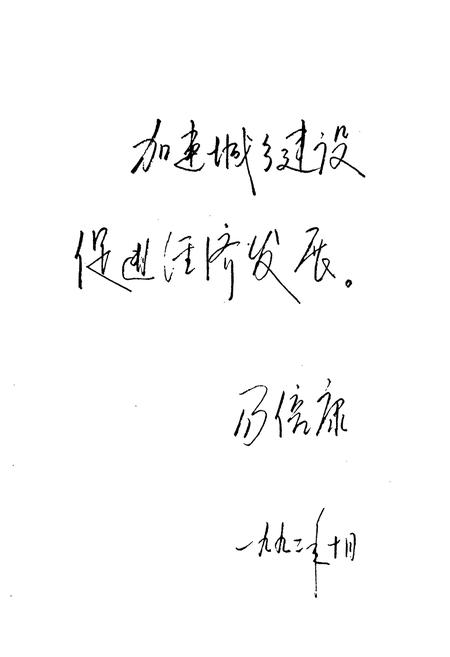 加速城乡建设
促进经济发展。
康
一九九二年十月